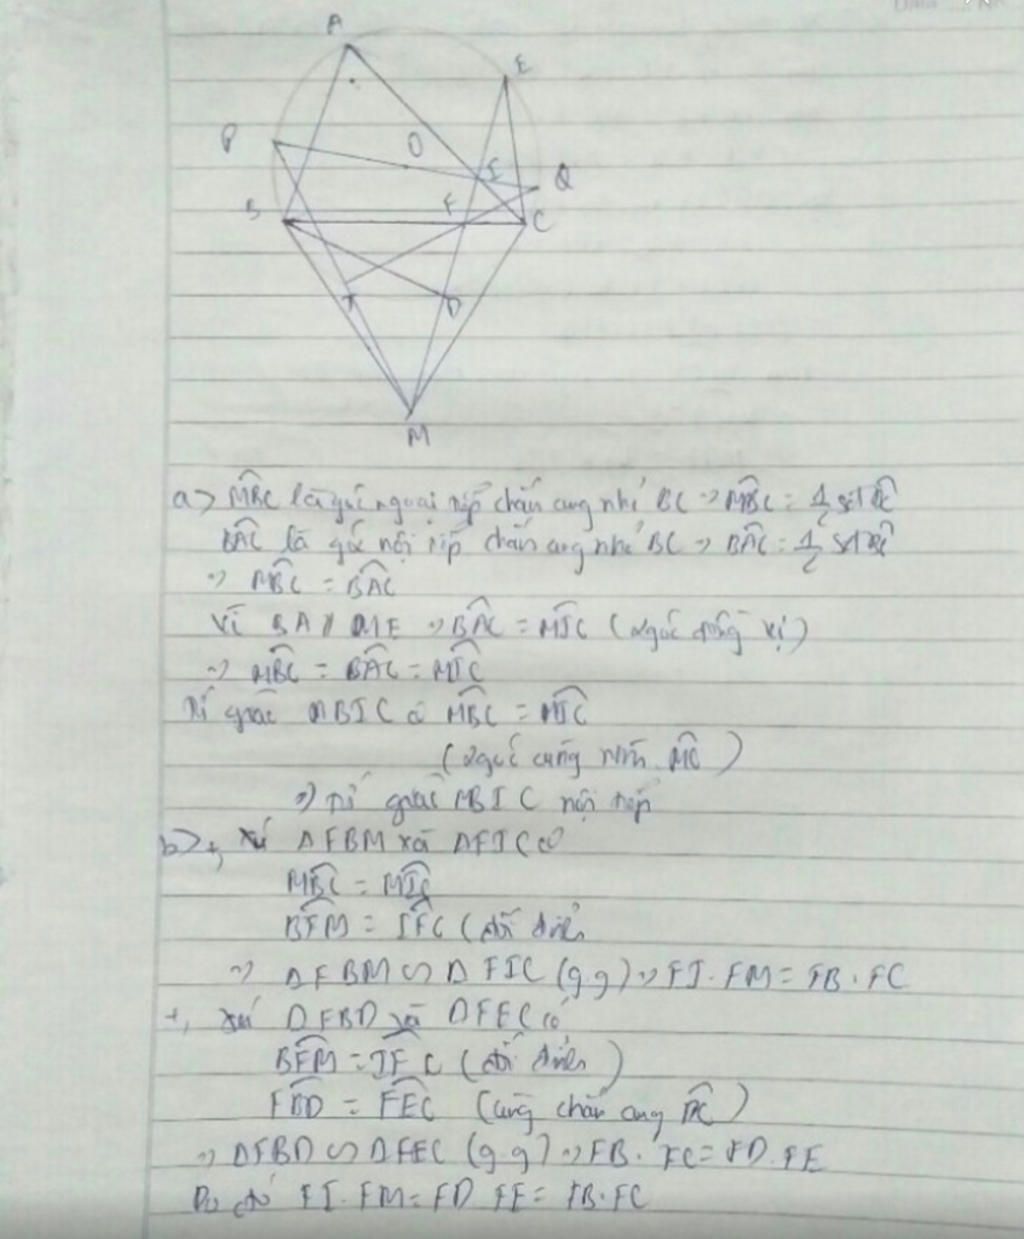 A
E
P
O
I
Q
B
F
C
T
D
M
a> MBC là góc ngoại tiếp chắn cung nhỏ BC => MBC = 1/2 sđ BC
BAC là góc nội tiếp chắn cung nhỏ BC => BAC = 1/2 sđ BC
=> MBC = BAC
Vì BA // ME => BAC = MIC (2 góc đồng vị)
=> MBC = BAC = MIC
Tứ giác MBIC có MBC = MIC
(2 góc cùng nhìn MC)
=> Tứ giác MBIC nội tiếp
b> +, xét ΔFBM và ΔFIC có
MBC = MIC
BFM = IFC (đối đỉnh
=> ΔFBM ∽ ΔFIC (g.g) => FI.FM = FB.FC
+, xét ΔFBD và ΔFEC có
BFM = IFC (đối đỉnh)
FBD = FEC (cùng chắn cung DC)
=> ΔFBD ∽ ΔFEC (g.g) => FB.FC = FD.FE
Do đó FI.FM = FD.FE = FB.FC